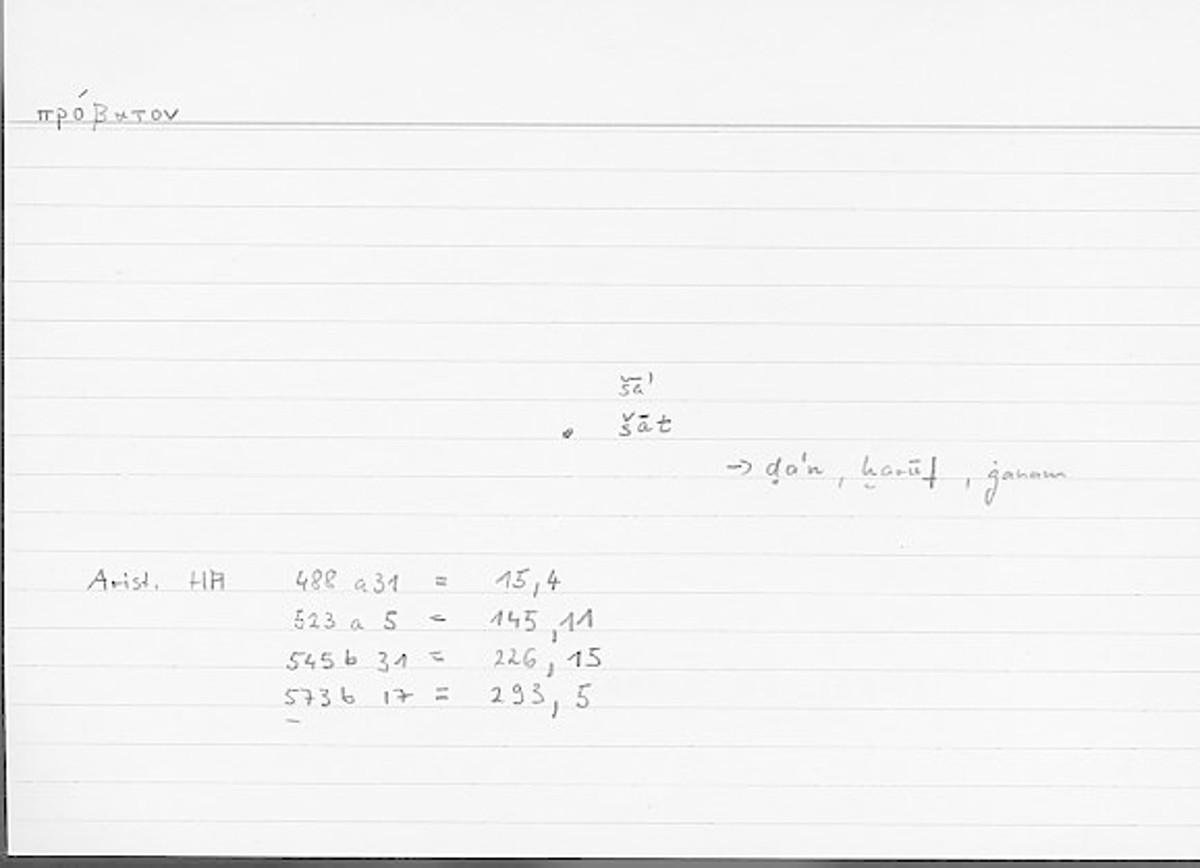 πρόβατον
šāʾ
• šāt
→ ḍaʾn, ḫarūf, ġanam
Arist. HA 488 a31 = 15,4
523 a 5 = 145,11
545 b 31 = 226,15
573 b 17 = 293,5